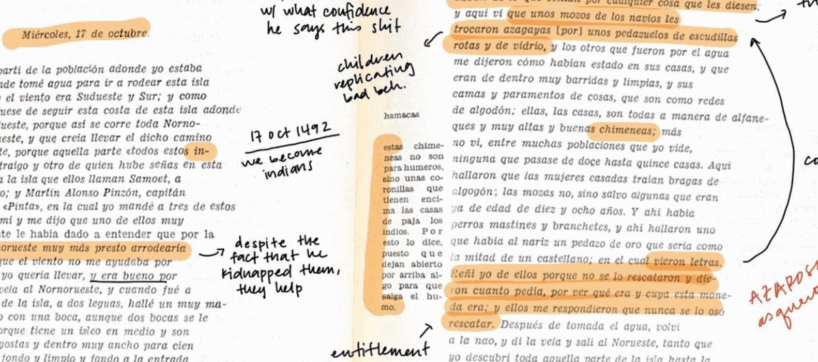 w/ what confidence
he says this shit
Miércoles, 17 de octubre.
parti de la población adonde yo estaba
nde tomé agua para ir a rodear esta isla
el viento era Sudueste y Sur; y como
fuese de seguir esta costa de esta isla adonde
ueste, porque así se corre toda Norno-
este, y que creía llevar el dicho camino
te, porque aquella parte «todos estos in-
traigo y otro de quien hube señas en esta
a la isla que ellos llaman Samoet, a
o; y Martín Alonso Pinzón, capitán
«Pinta», en la cual yo mandé a tres de estos
mí y me dijo que uno de ellos muy
te le había dado a entender que por la
orueste muy más presto arrodearía
que el viento no me ayudaba por
yo quería llevar, y era bueno por
vela al Nornorueste, y cuando fué a
de la isla, a dos leguas, hallé un muy ma-
o con una boca, aunque dos bocas se le
orque tiene un isleo en medio y son
gostas y dentro muy ancho para cien
fondo y limpio y fondo a la entrada
17 oct 1492
we become
indians
despite the
fact that he
kidnapped them,
they help
children
replicating
bad beh.
hamacas
estas chime-
neas no son
para humeros,
sino unas co-
ronillas que
tienen enci-
ma las casas
de paja los
indios. Por
esto lo dice,
puesto que
dejan abierto
por arriba al-
go para que
salga el hu-
mo.
entitlement
cualquier cosa que les diesen;
y aquí vi que unos mozos de los navíos les
trocaron azagayas [por] unos pedazuelos de escudillas
rotas y de vidrio, y los otros que fueron por el agua
me dijeron cómo habían estado en sus casas, y que
eran de dentro muy barridas y limpias, y sus
camas y paramentos de cosas, que son como redes
de algodón; ellas, las casas, son todas a manera de alfane-
ques y muy altas y buenas chimeneas; más
no vi, entre muchas poblaciones que yo vide,
ninguna que pasase de doce hasta quince casas. Aquí
hallaron que las mujeres casadas traían bragas de
algogón; las mozas no, sino salvo algunas que eran
ya de edad de diez y ocho años. Y ahí había
perros mastines y branchetes, y ahí hallaron uno
que había al nariz un pedazo de oro que sería como
la mitad de un castellano; en el cual vieron letras.
Reñí yo de ellos porque no se lo rescataron y die-
ron cuanto pedía, por ver qué era y cuya esta mone-
da era; y ellos me respondieron que nunca se lo osó
rescatar. Después de tomada el agua, volví
a la nao, y di la vela y salí al Norueste, tanto que
yo descubrí toda aquella parte de la isla hasta